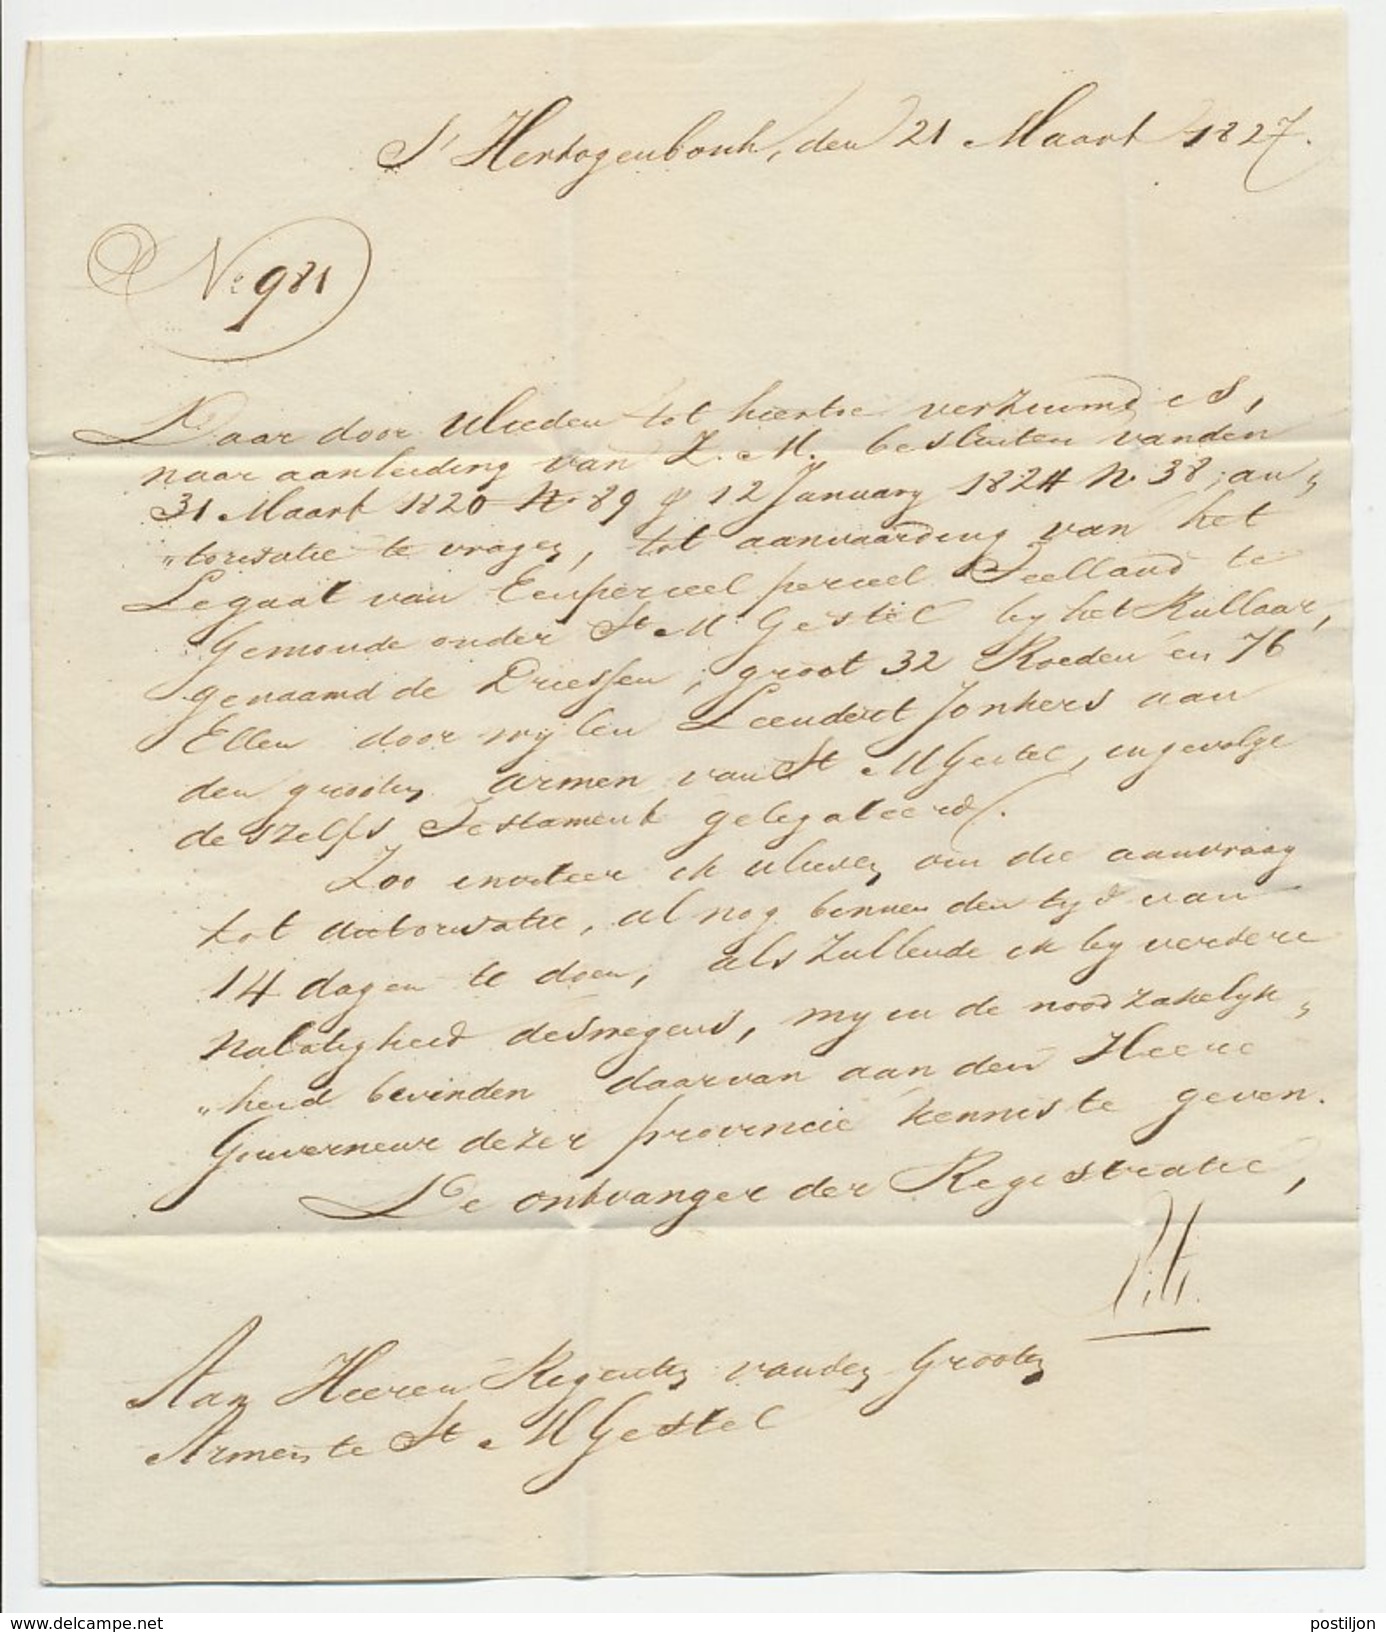 S' Hertogenbosch, den 21 Maart 1827.
No 981
Daar door Ulieden tot hiertoe verzuimd is,
naar aanleiding van Z. M. besluiten vanden
31 Maart 1820 No 89 & 12 January 1824 No 38, au„
„torisatie te vragen, tot aanvaarding van het
Legaat van Eenperceel perceel Teelland te
Gemonde onder St M Gestel by het Rullaar,
genaamd de Driessen, groot 32 Roeden en 76
Ellen door wylen Leendert Jonkers aan
den grooten armen van St M Gestel, ingevolge
deszelfs Testament gelegateerd.
Zoo inviteer ik ulieden om die aanvraag
tot autorisatie, al nog binnen den tyd van
14 dagen te doen, als zullende ik by verdere
nalatigheid deswegens, my in de noodzakelyk„
„heid bevinden daarvan aan den Heere
Gouverneur dezer provincie kennis te geven.
De ontvanger der Registratie,
Aan Heeren Regenten vanden Grooten
Armen te St M Gestel
www.delcampe.net
postiljon